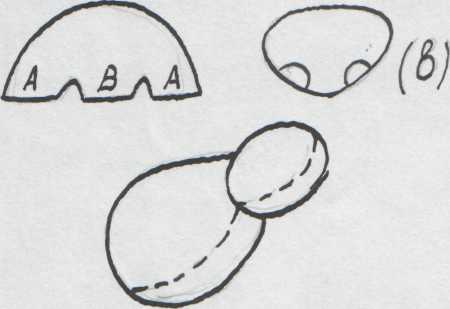 A B A (B)